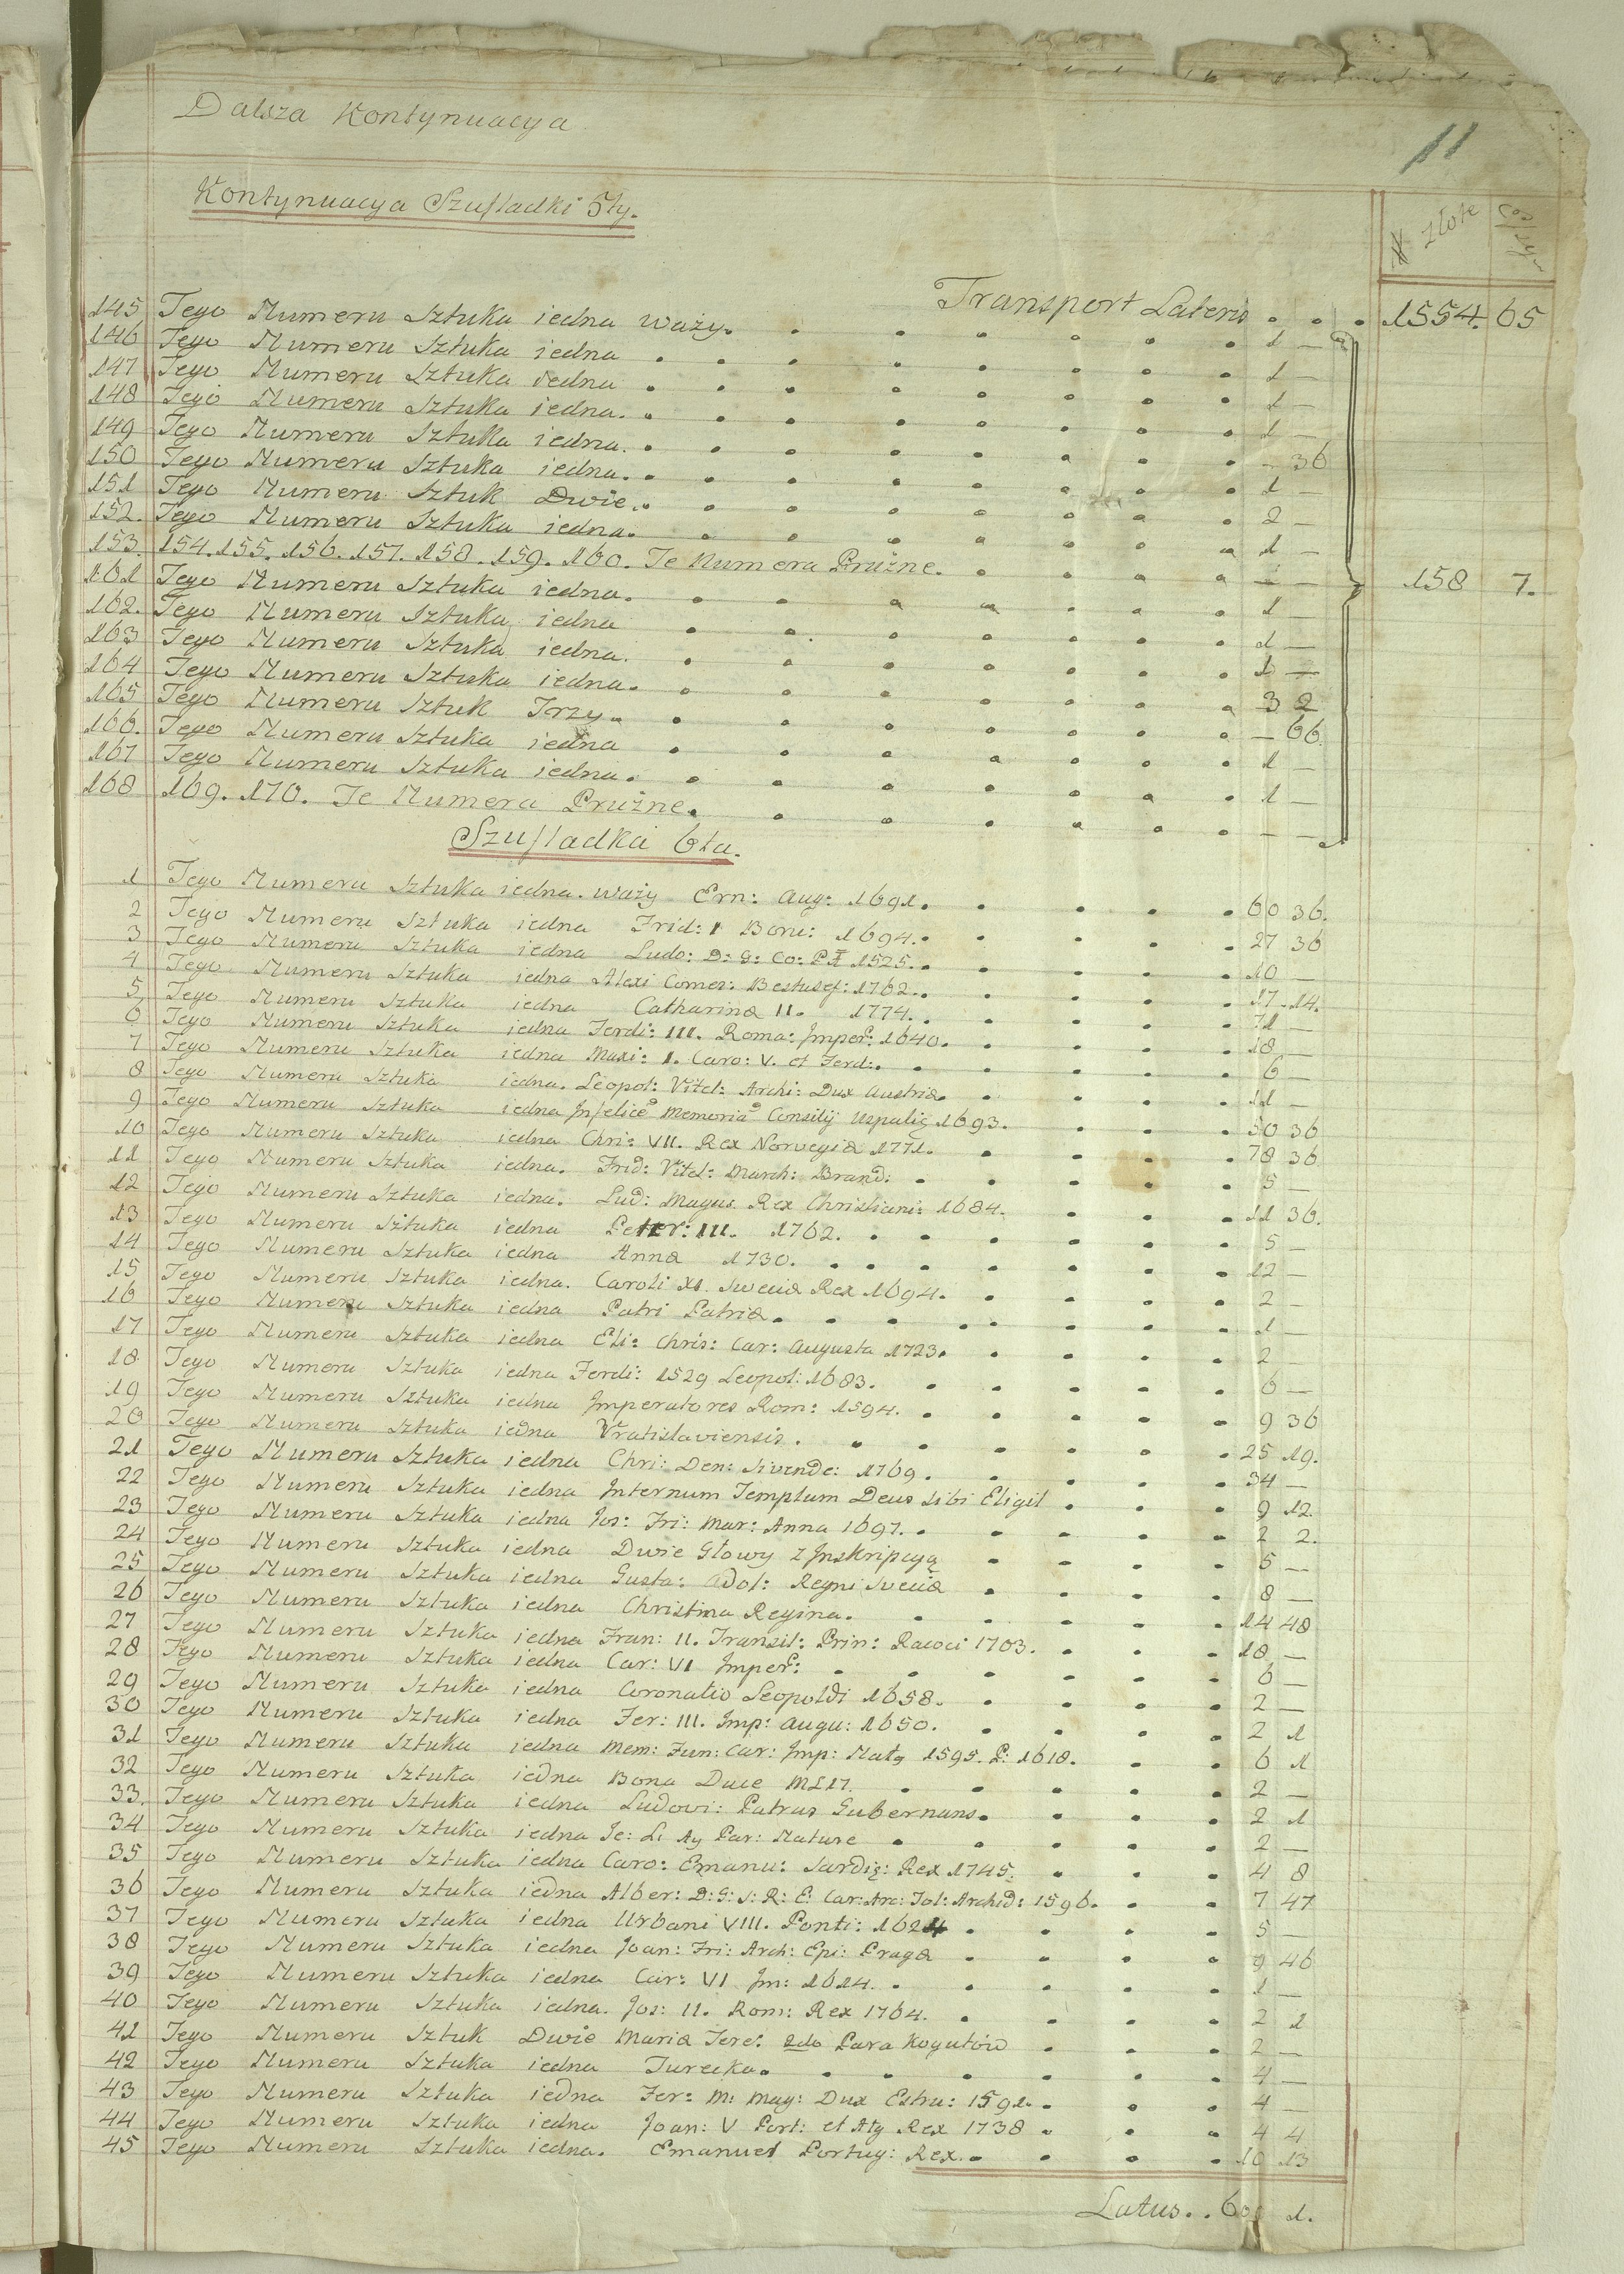 Dalsza Kontynuacya
11
Kontynuacya Szufladki 5ty.
# Złote
Transport Lateris . . . 1554. 65
145 Tego Numeru Sztuka iedna waży. 1 —
146 Tego Numeru Sztuka iedna 1 —
147 Tego Numeru Sztuka iedna 1 —
148 Tego Numeru Sztuka iedna. — 36
149 Tego Numeru Sztuka iedna. 1 —
150 Tego Numeru Sztuka iedna. 2 —
151 Tego Numeru Sztuk Dwie. 1 —
152. Tego Numeru Sztuka iedna.
153. 154. 155. 156. 157. 158. 159. 160. Te Numera Prużne. — —
158 7.
161 Tego Numeru Sztuka iedna. 1 —
162. Tego Numeru Sztuka iedna 1 —
163 Tego Numeru Sztuka iedna. 1 —
164 Tego Numeru Sztuka iedna. 3 2
165 Tego Numeru Sztuk Trzy. — 66.
166. Tego Numeru Sztuka iedna 1 —
167 Tego Numeru Sztuka iedna. 1 —
168 169. 170. Te Numera Prużne. — —
Szufladka 6ta.
1 Tego Numeru Sztuka iedna. waży Ern: Aug: 1691. 60 36.
2 Tego Numeru Sztuka iedna Frid: I Boru: 1694. 27 36
3 Tego Numeru Sztuka iedna Ludo: D: G: Co: 1525. 10 —
4 Tego Numeru Sztuka iedna Alexi Comes: Bestusef: 1762. 17. 14.
5 Tego Numeru Sztuka iedna Catharina II. 1774. 71 —
6 Tego Numeru Sztuka iedna Ferdi: III. Roma: Imper: 1640. 18 —
7 Tego Numeru Sztuka iedna Maxi: I. Caro: V. et Ferd: 6 —
8 Tego Numeru Sztuka iedna. Leopol: Vitel: Archi: Dux Austria. 11 —
9 Tego Numeru Sztuka iedna Infelice Memoria Consilij 1693. 30 36
10 Tego Numeru Sztuka iedna Chri: VII. Rex Norvegia 1771. 78 36
11 Tego Numeru Sztuka iedna. Frid: Vitel: March: Brand: 5 —
12 Tego Numeru Sztuka iedna. Lud: Magus Rex Christiani: 1684. 11 36.
13 Tego Numeru Sztuka iedna Peter: III. 1762. 5 —
14 Tego Numeru Sztuka iedna Anna 1730. 12 —
15 Tego Numeru Sztuka iedna. Caroli XI. Svecia Rex 1694. 2 —
16 Tego Numeru Sztuka iedna Patri Patria. 1 —
17 Tego Numeru Sztuka iedna Eli: Chris: Car: Augusta 1723. 2 —
18 Tego Numeru Sztuka iedna Ferdi: 1529 Leopol: 1683. 6 —
19 Tego Numeru Sztuka iedna Imperatores Rom: 1594. 9 36
20 Tego Numeru Sztuka iedna Vratislaviensis. 25 19.
21 Tego Numeru Sztuka iedna Chri: Den: 1769. 34 —
22 Tego Numeru Sztuka iedna Internum Templum Deus sibi Eligit 9 12.
23 Tego Numeru Sztuka iedna Jos: Fri: Mar: Anna 1697. 2 2.
24 Tego Numeru Sztuka iedna Dwie Głowy z Inskripcyą 5 —
25 Tego Numeru Sztuka iedna Gusta: Adol: Regni Svecia 8 —
26 Tego Numeru Sztuka iedna Christina Regina. 14 48
27 Tego Numeru Sztuka iedna Fran: II. Transil: Prin: Racoci 1703. 18 —
28 Tego Numeru Sztuka iedna Car: VI Imper: 6 —
29 Tego Numeru Sztuka iedna Coronatio Leopoldi 1658. 2 —
30 Tego Numeru Sztuka iedna Fer: III. Imp: Augu: 1650. 2 1
31 Tego Numeru Sztuka iedna Mem: Fun: Car: Imp: 1595. P: 1618. 6 1
32 Tego Numeru Sztuka iedna Bona Duce 2 —
33. Tego Numeru Sztuka iedna Ludovi: Patrus Gubernans. 2 1
34 Tego Numeru Sztuka iedna Je: Li Ag Par: Nature 2 —
35 Tego Numeru Sztuka iedna Caro: Emanu: Sardię: Rex 1745. 4 8
36 Tego Numeru Sztuka iedna Alber: D: G: S: R: E: Car: Arc: Tol: Archid: 1596. 7 47
37 Tego Numeru Sztuka iedna Urbani VIII. Ponti: 1624 5 —
38 Tego Numeru Sztuka iedna Joan: Fri: Arch: Epi: Praga 9 46
39 Tego Numeru Sztuka iedna Car: VI Im: 1614. 1 —
40 Tego Numeru Sztuka iedna. Jos: II. Rom: Rex 1764. 2 1
41 Tego Numeru Sztuk Dwie Maria Tere: 2do Para Kogutów 2 —
42 Tego Numeru Sztuka iedna Turecka. 4 —
43 Tego Numeru Sztuka iedna Fer: M: Mag: Dux Estru: 1591. 4 —
44 Tego Numeru Sztuka iedna Joan: V Port: et Alg Rex 1738 4 4
45 Tego Numeru Sztuka iedna. Emanuel Portug: Rex. 10 13
Latus. . 601 1.